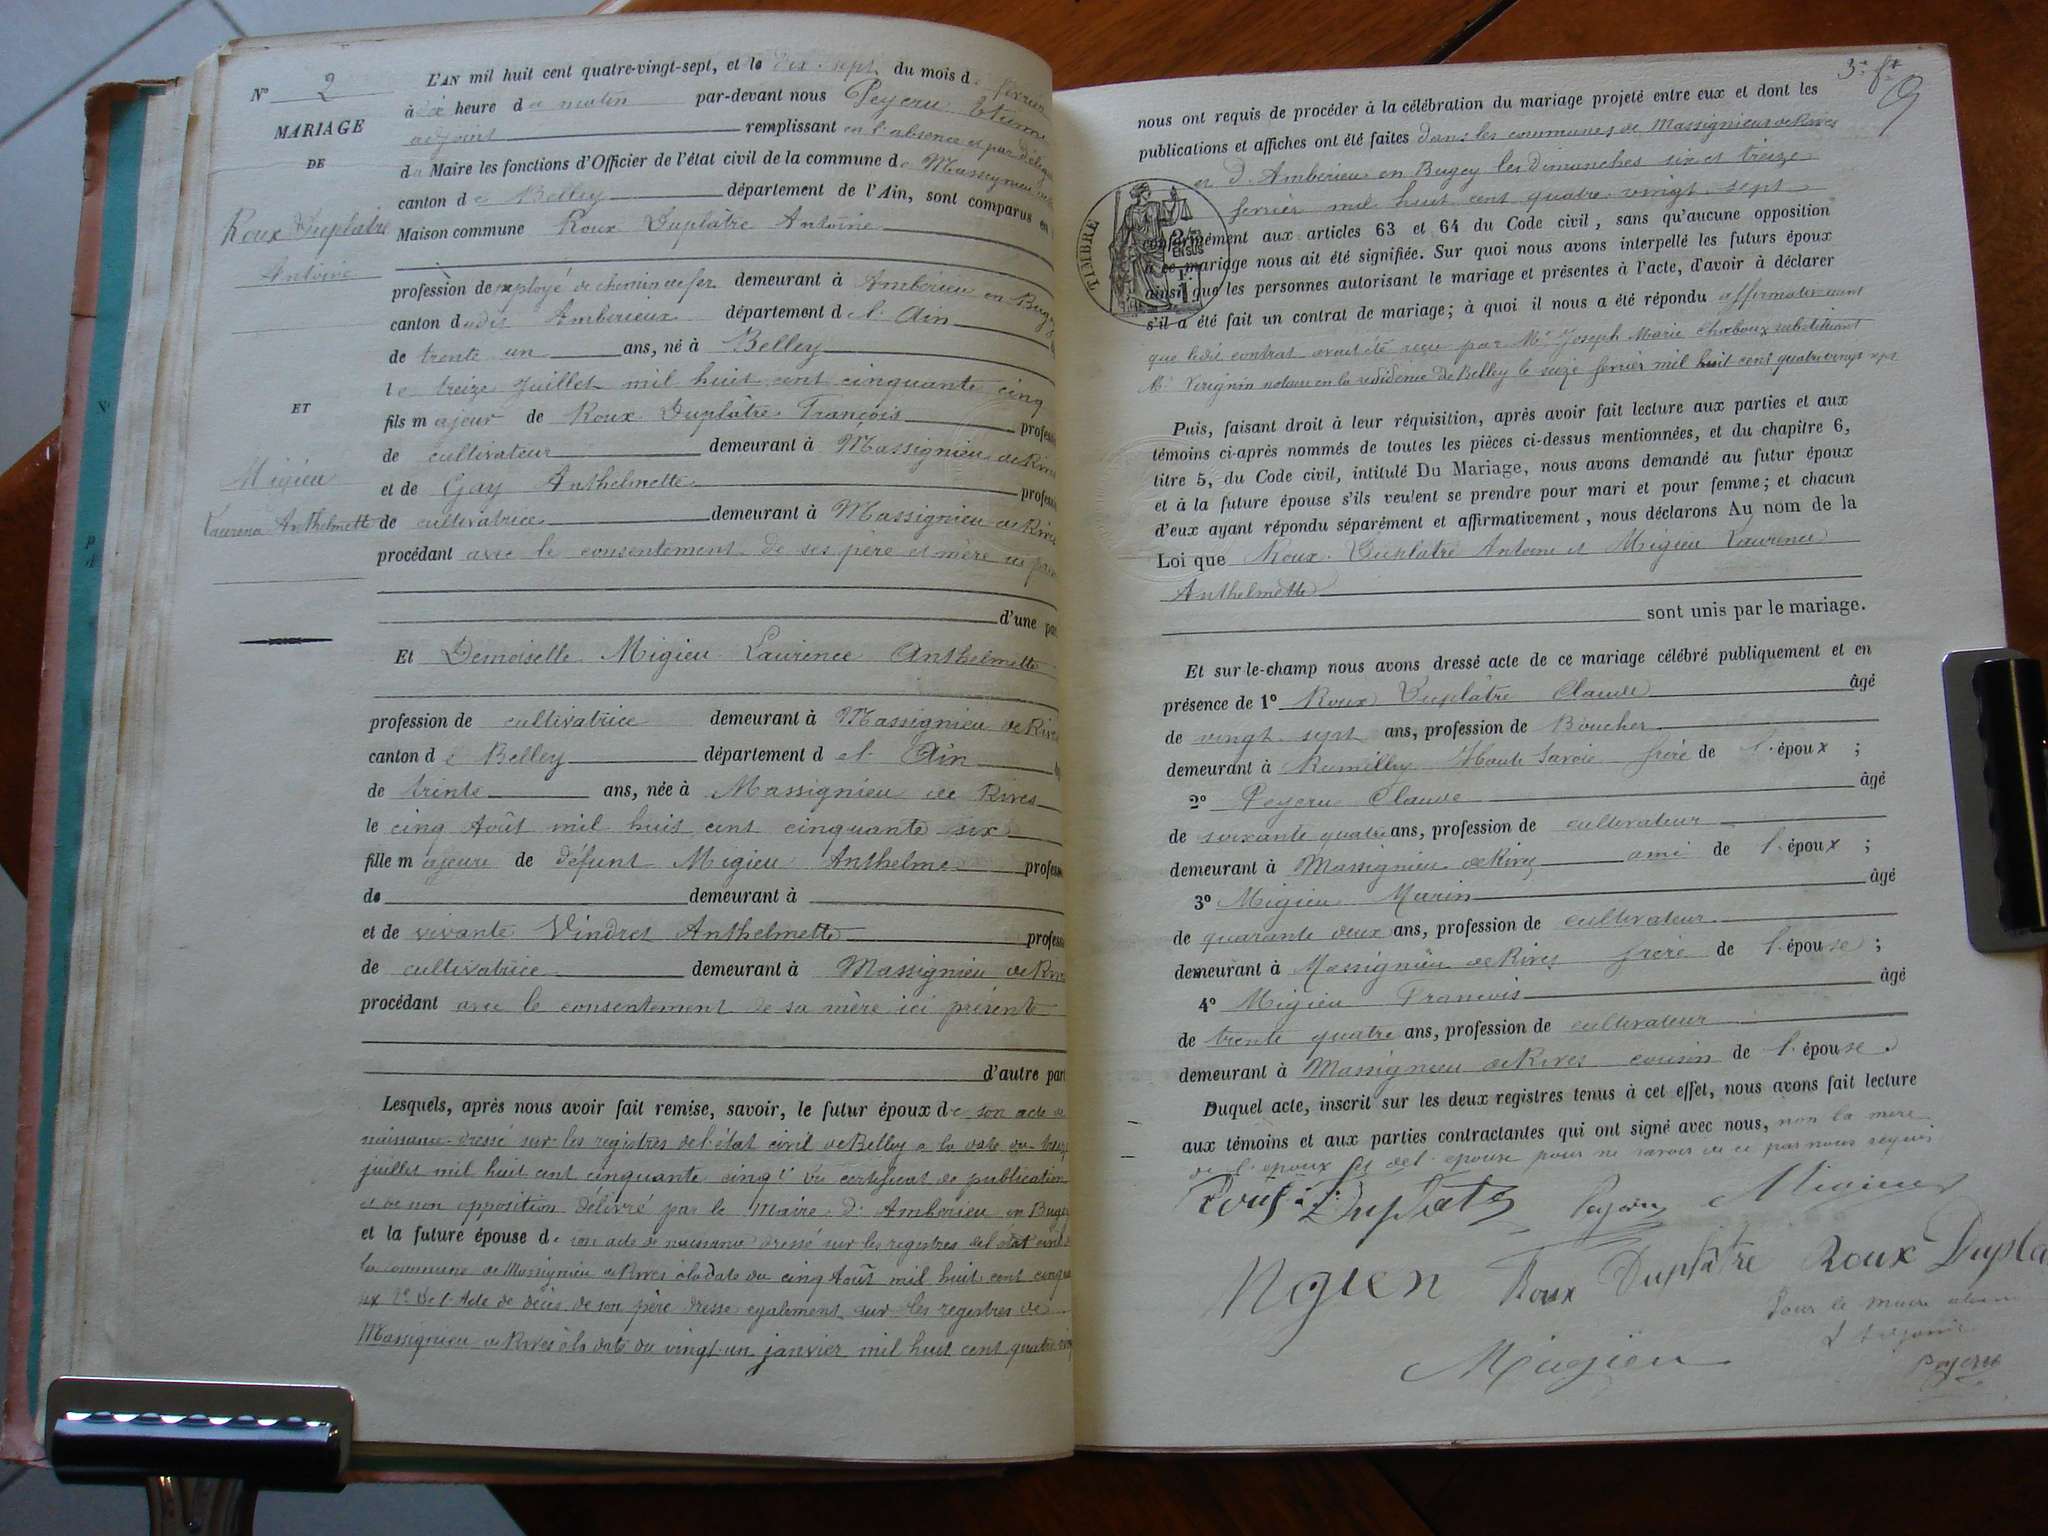 N° 2
MARIAGE
DE
Roux Duplatre
Antoine
ET
Migieu
Laurence Anthelmette
L'AN mil huit cent quatre-vingt-sept, et le dix-sept du mois de février
à dix heure du matin par-devant nous Peycru Etienne
adjoint remplissant en l'absence et par délég
du Maire les fonctions d'Officier de l'état civil de la commune de Massignieu de
canton de Belley département de l'Ain, sont comparus en
Maison commune Roux Duplatre Antoine
profession de employé de chemin de fer demeurant à Ambérieu en Bugey
canton dudit Ambérieux département de l'Ain
de trente un ans, né à Belley
le treize Juillet mil huit cent cinquante cinq
fils majeur de Roux Duplâtre François profess
de cultivateur demeurant à Massignieu de Rives
et de Gay Anthelmette profess
de cultivatrice demeurant à Massignieu de Rives
procédant avec le consentement de ses père et mère ici
d'une par
Et Demoiselle Migieu Laurence Anthelmette
profession de cultivatrice demeurant à Massignieu de Rives
canton de Belley département de l'Ain
de trente ans, née à Massignieu de Rives
le cinq Août mil huit cent cinquante six
fille majeure de défunt Migieu Anthelme profess
de demeurant à
et de vivante Vindret Anthelmette profess
de cultivatrice demeurant à Massignieu de Rives
procédant avec le consentement de sa mère ici présente
d'autre part
Lesquels, après nous avoir fait remise, savoir, le futur époux de son acte de
naissance dressé sur les registres de l'état civil de Belley a la date du treize
juillet mil huit cent cinquante cinq Du certificat de publication
et de non opposition délivré par le Maire d'Ambérieu en Bugey
et la future épouse de son acte de naissance dressé sur les registres de l'état civil
la commune de Massignieu de Rives à la date du cinq Août mil huit cent cinqua
six 2° De l'Acte de décès de son père dressé également sur les registres de
Massignieu de Rives à la date du vingt un janvier mil huit cent quatre ving
3e ft
nous ont requis de procéder à la célébration du mariage projeté entre eux et dont les
publications et affiches ont été faites dans les communes de Massignieu de Rives
et d'Ambérieu en Bugey les Dimanches six et treize
février mil huit cent quatre vingt sept
TIMBRE
conformément aux articles 63 et 64 du Code civil, sans qu'aucune opposition
à ce mariage nous ait été signifiée. Sur quoi nous avons interpellé les futurs époux
ainsi que les personnes autorisant le mariage et présentes à l'acte, d'avoir à déclarer
s'il a été fait un contrat de mariage; à quoi il nous a été répondu affirmativement
que ledit contrat avait été reçu par Me Joseph Marie Charboux substituant
Me Virignin notaire en la residence de Belley le seize fevrier mil huit cent quatre vingt sept
Puis, faisant droit à leur réquisition, après avoir fait lecture aux parties et aux
témoins ci-après nommés de toutes les pièces ci-dessus mentionnées, et du chapitre 6,
titre 5, du Code civil, intitulé Du Mariage, nous avons demandé au futur époux
et à la future épouse s'ils veulent se prendre pour mari et pour femme; et chacun
d'eux ayant répondu séparément et affirmativement, nous déclarons Au nom de la
Loi que Roux Duplatre Antoine et Migieu Laurence
Anthelmette
sont unis par le mariage.
Et sur-le-champ nous avons dressé acte de ce mariage célébré publiquement et en
présence de 1° Roux Duplâtre Claude âgé
de vingt sept ans, profession de Boucher
demeurant à Rumilly Haute Savoie frère de l'époux;
2° Peycru Claude âgé
de soixante quatre ans, profession de cultivateur
demeurant à Massignieu de Rives ami de l'époux;
3° Migieu Marin âgé
de quarante deux ans, profession de cultivateur
demeurant à Massignieu de Rives frère de l'épouse;
4° Migieu François âgé
de trente quatre ans, profession de cultivateur
demeurant à Massignieu de Rives cousin de l'épouse.
Duquel acte, inscrit sur les deux registres tenus à cet effet, nous avons fait lecture
aux témoins et aux parties contractantes qui ont signé avec nous, non la mère
de l'époux et de l'épouse pour ne savoir de ce par nous requis
Roux Duplatre Migieu
Migieu Roux Duplâtre Roux Dupla
Pour le maire absent
L'adjoint
Peycru
Migieu